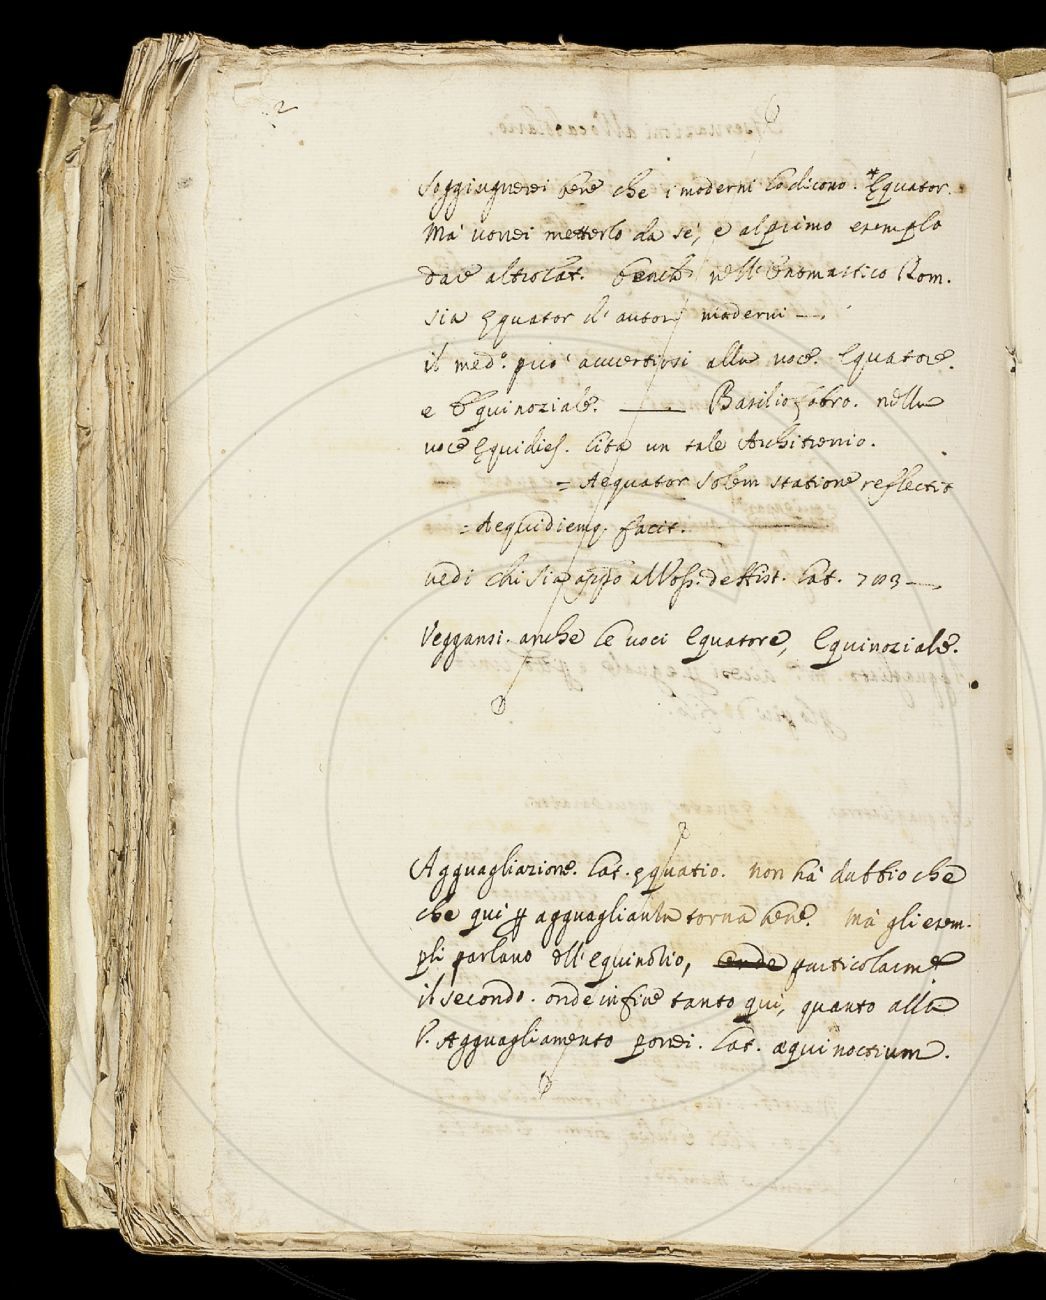 2
Soggiugnerei bene che i moderni lo dicono. *Equator.
Ma' vorrei metterlo da se', e al primo esemplo
dare altro lat. benche nell'Onomastico Rom.
sia Equator d' autori moderni —.
il med.o puo' avvertirsi alla voce. Equatore.
e Equinoziale. — Basilio Fabro. nella
voce Equidies. cita un tale Architrenio.
= Aequator Solem statione reflectit
= Aequidiemq. facit.
vedi chi sia appo al Voss. de Hist. Lat. 703 —
Veggansi. anche le voci Equatore, Equinoziale.
Agguagliazione. Lat. equatio. non ha' dubbio che
che qui p agguaglianza torna bene. Ma' gli esem-
pli parlano dell'equinozio, onde particolarmte
il secondo. onde in fine tanto qui, quanto alla
V. Agguagliamento porrei. Lat. aequinoctium.